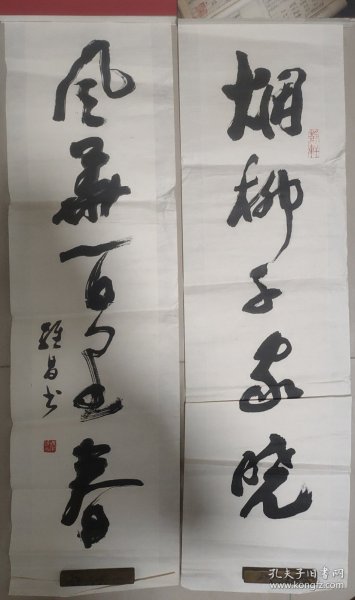 烟柳千家晓
风华百里春
雅昌书
孔夫子旧书网
www.kongfz.com